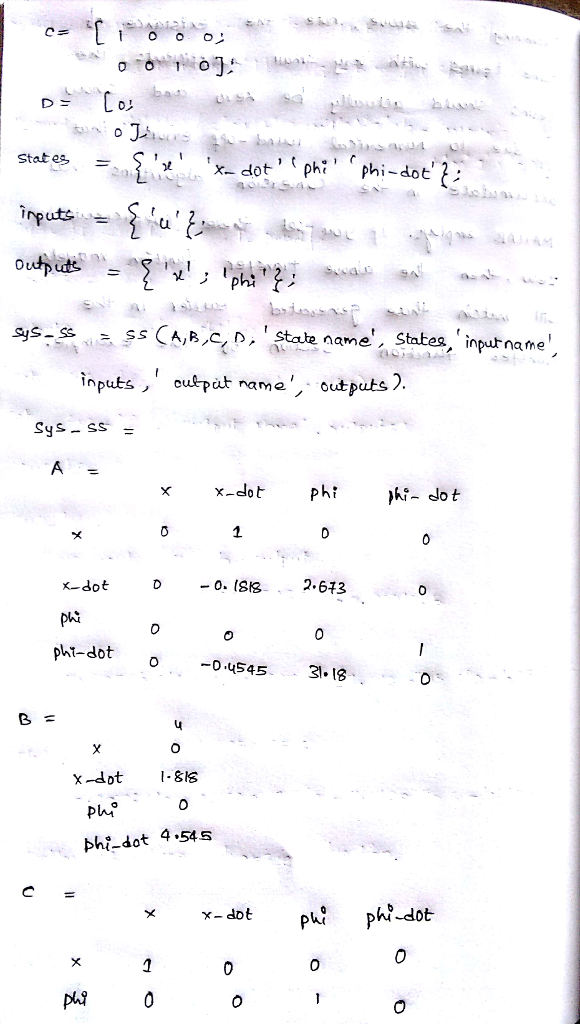 C = [ 1 0 0 0;
0 0 1 0];
D = [0;
0];
states = {'x' 'x-dot' 'phi' 'phi-dot'};
inputs = {'u'};
outputs = {'x'; 'phi'};
sys_ss = ss (A,B,C,D, 'state name', states, 'input name',
inputs, 'output name', outputs).
Sys_ss =
A =
x x-dot phi phi-dot
x 0 1 0 0
x-dot 0 -0.1818 2.673 0
phi 0 0 0 1
phi-dot 0 -0.4545 31.18 0
B =
u
x 0
x-dot 1.818
phi 0
phi-dot 4.545
C =
x x-dot phi phi-dot
x 1 0 0 0
phi 0 0 1 0